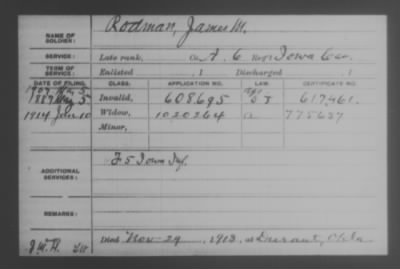 NAME OF SOLDIER: Rodman, James M.
SERVICE: Late rank, Co. A, 6 Reg't Iowa Cav.
TERM OF SERVICE: Enlisted , 1 Discharged , 1
DATE OF FILING. CLASS. APPLICATION NO. LAW. CERTIFICATE NO.
1907
1887 May 5 Invalid, 608695 617461
1914 Jan 10 Widow, 1020264 775637
Minor,
ADDITIONAL SERVICES: F 5 Iowa Inf.
REMARKS:
Died Nov 29, 1913, at Durant, Okla